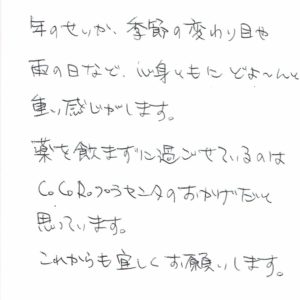 年のせいか、季節の変わり目や
雨の日など、心身ともにどよ〜んと
重い感じがします。
薬を飲まずに過ごせているのは
CoCoRoプラセンタのおかげだと
思っています。
これからも宜しくお願いします。